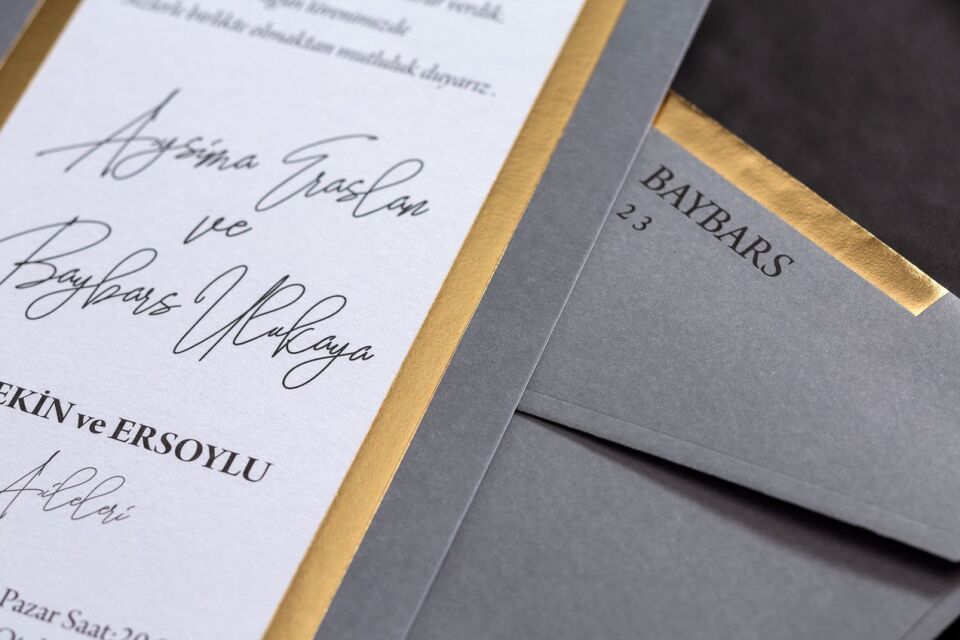 verdik.
törenimizde
birlikte olmaktan mutluluk duyarız.
Aysima Eraslan
ve
Baybars Ulukaya
EKİN ve ERSOYLU
Aileleri
Pazar Saat:
BAYBARS
23